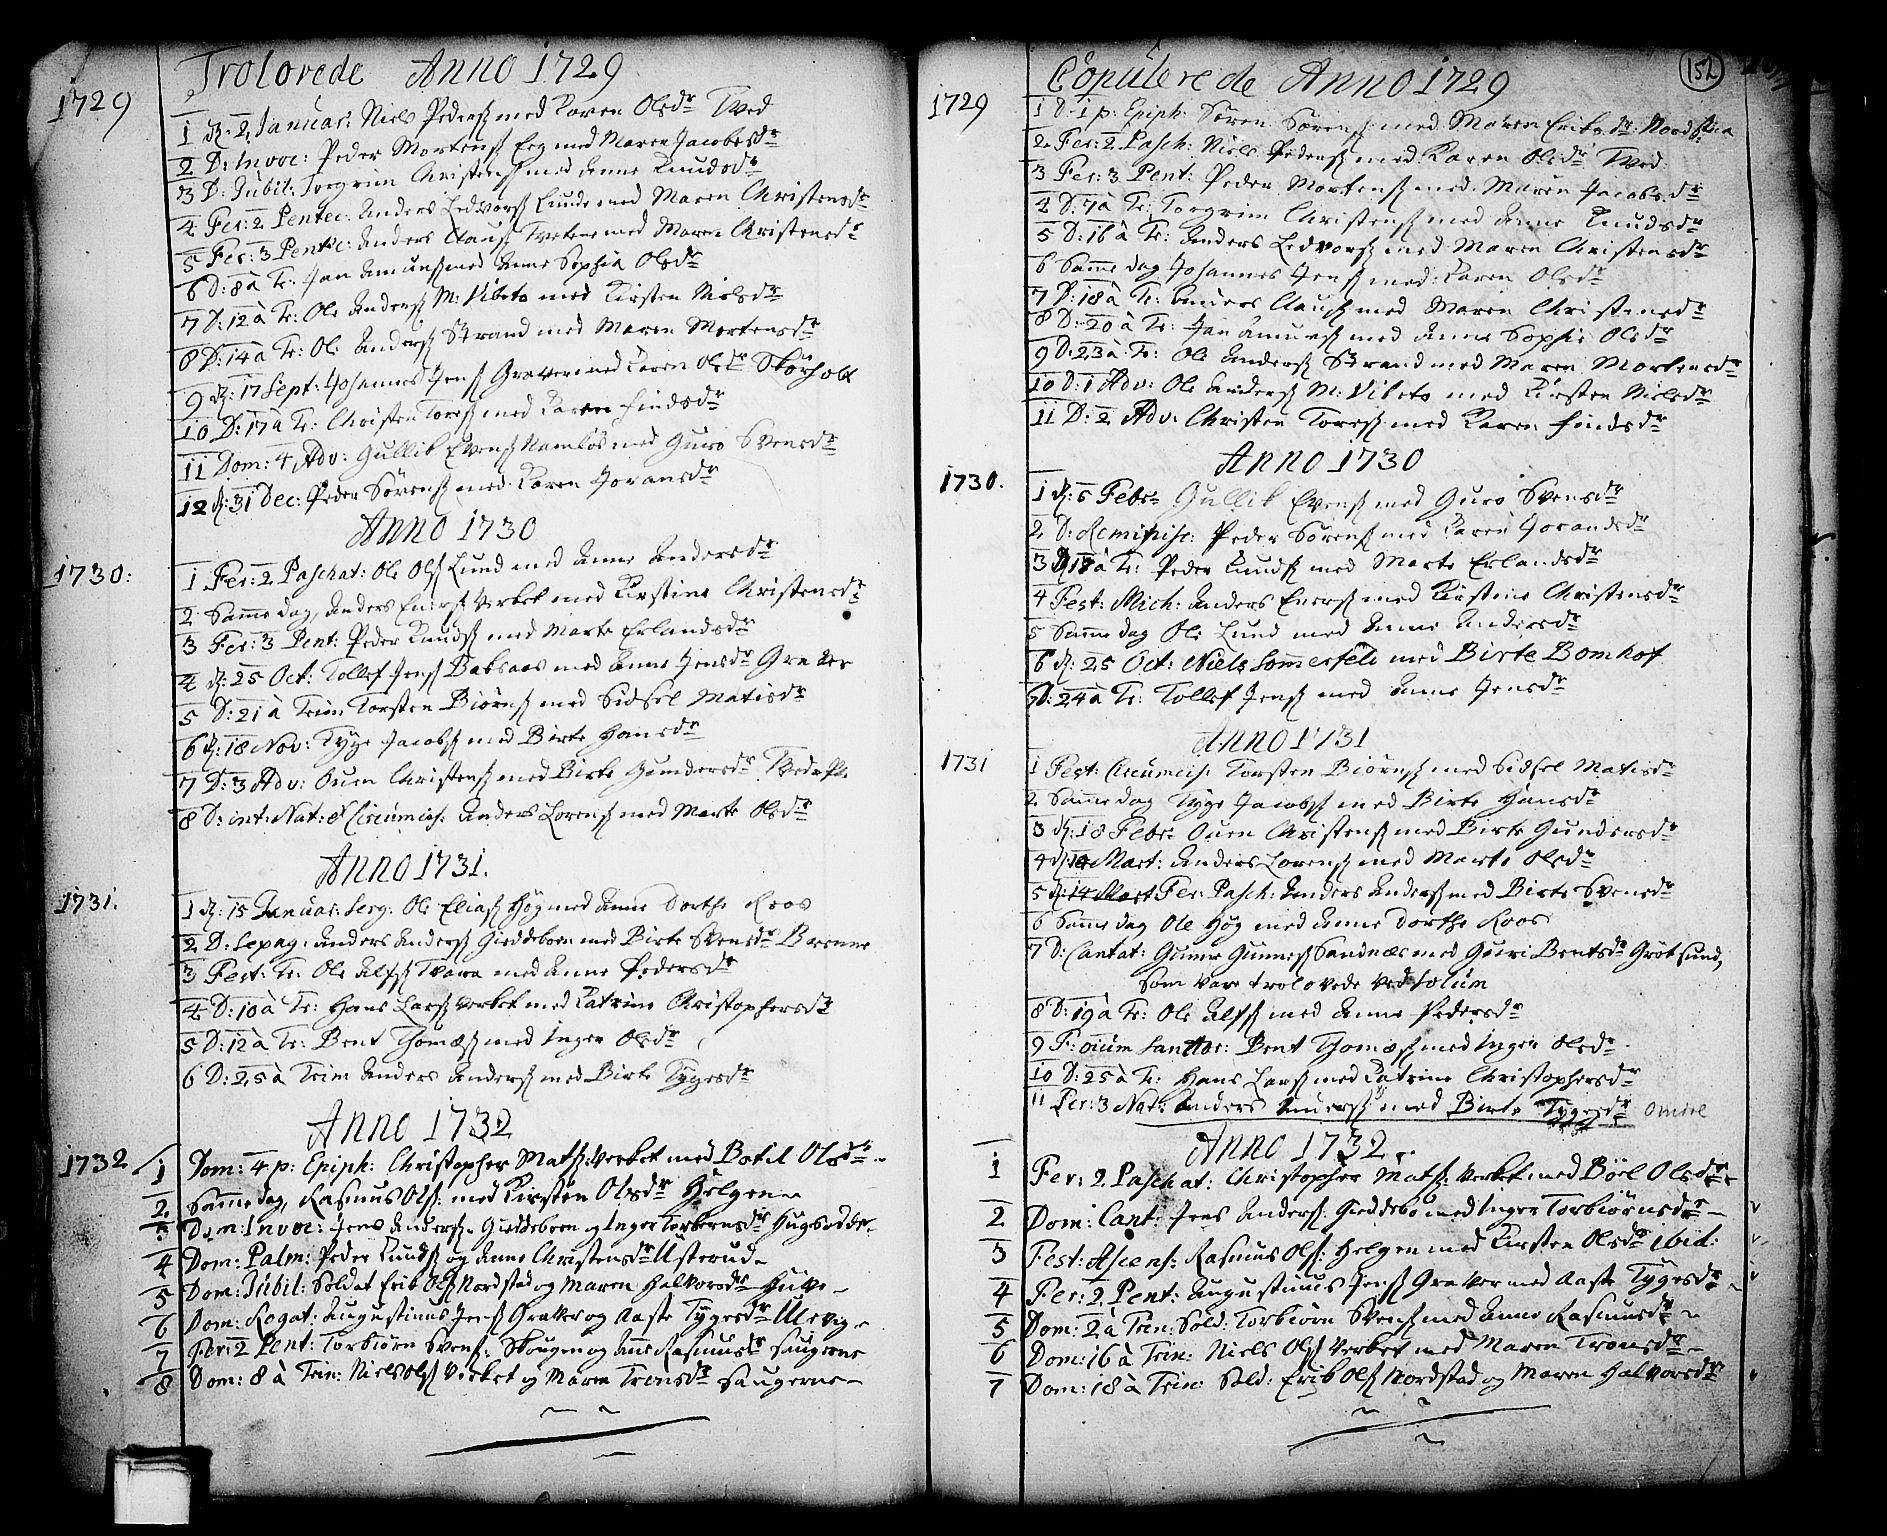 Trolovede Anno 1729
1729
1 d. 2 Januar: Niels Peders: med Karen Olsdr Tved
2 D: Invoc: Peder Mortens: Eeg med Maren Jacobsdr
3 D: Jubil: Torgrim Christens: med Anne Knudsdr
4 Fer: 2 Pentec: Anders Ledvors: Lunde med Maren Christensdr
5 Fer: 3 Pentec: Anders Claus: Tvetene med Maren Christensdr
6 D: 8 à Tr: Jan Amuns: med Anne Sophia Olsdr
7 D: 12 à Tr: Ole Anders: M: Vibeto med Kirsten Nielsdr
8 D: 14 à Tr: Ole Anders: Strand med Maren Mortensdr
9 d. 17 Sept: Johannes Jens: Graver med Karen Olsdr Skörholt
10 D: 17 à Tr: Christen Tores: med Karen Findsdr
11 Dom: 4 Adv: Gullik Evens: Namlös med Guro Svensdr
12 d. 31 Dec: Peder Sörens: med Karen Joransdr
Anno 1730
1730:
1 Fer: 2 Paschat: Ole Ols: Lund med Anne Andersdr
2 Samme dag, Anders Eners: Verket med Kirstine Christensdr
3 Fer: 3 Pent: Peder Knuds: med Marte Erlandsdr
4 d. 25 Oct: Tollef Jens: Baksaas med Anne Jensdr Graver
5 D: 21 à Trin: Torsten Biörns: med Sidsel Matisdr
6 d: 18 Nov: Tyge Jacobs: med Birte Hansdr
7 D: 3 Adv: Ouen Christens: med Birte Gundersdr
8 D: int: Nat: & Circumcis: Anders Lorens: med Marte Olsdr
Anno 1731.
1731.
1 d. 15 Januar: Serg: Ole Elias: Hög med Anne Dorthe Roos
2 D: Sepag: Anders Anders: Gieddeboen med Birte Svensdr Barenne
3 Fest: Tr: Ole Alfs: Tvara med Anne Pedersdr
4 D: 10 à Tr: Hans Lars: Verket med Catrine Christophersdr
5 D: 12 à Tr: Bent Thomæs: med Inger Olsdr
6 D: 25 à Trin: Anders Anders: med Birte Tygesdr
Anno 1732
1732
1 Dom: 4 p: Epiph: Christopher Mats: Verket med Botil Olsdr
2 Samme dag, Rasmus Ols: med Kirsten Olsdr Helgen
3 Dom: Invoc: Jens Anders: Gieddeboen og Inger Torbernsdr
4 Dom: Palm: Peder Knuds: og Anne Christensdr Usterud
5 Dom: Jubil: Soldat Erik Ols: Nordstad og Maren Halvorsdr
6 Dom: Rogat: Augustinus Jens: Graver og Aaste Tygesdr Ulevig
7 Fer: 2 Pent: Torbiörn Svens: Skougen og Anne Rasmusdr Saugerne
8 Dom: 8 à Trin: Niels Ols: Verket og Maren Tronsdr Saugerne
152
Copulerede Anno 1729
1729
1 D. 1 p: Epiph: Sören Sörens: med Maren Eriksdr Nordstra
2. Fer: 2 Pasch: Niels Peders: med Karen Olsdr Tved
3 Fer: 3 Pent: Peder Mortens: med Maren Jacobsdr
4 D: 7 à Tr: Torgrim Christens: med Anne Knudsdr
5 D: 16 à Tr: Anders Ledvors: med Maren Christensdr
6 Samme dag Johannes Jens: med Karen Olsdr
7 D: 18 à Tr: Anders Claus: med Maren Christensdr
8 D: 20 à Tr: Jan Amuns: med Anne Sophie Olsdr
9 D: 23 à Tr: Ole Anders: Strand med Maren Mortensdr
10 D: 1 Adv: Ole Anders: M: Vibeto med Kirsten Nielsdr
11 D: 2 Adv: Christen Tores: med Karen Findsdr
Anno 1730
1730.
1 d: 5 Febr: Gullik Evens: med Guro Svensdr
2. D: Reminisc: Peder Sörens: med Karen Joransdr
3 D: 17 à Tr: Peder Knuds: med Marte Erlandsdr
4 Fest: Mich: Anders Eners: med Kirstine Christensdr
5 Samme dag Ole Lund med Anne Andersdr
6 d: 25 Oct: Niels Sommerfelt med Birte Bomhof
7 D: 24 à Tr: Tollef Jens: med Anne Jensdr
Anno 1731
1731
1 Fest: Circumcis: Torsten Biörns: med Sidsel Matisdr
2 Samme dag Tyge Jacobs: med Birte Hansdr
3 d: 18 Febr: Ouen Christens: med Birte Gundersdr
4 d: Mart: Anders Lorens: med Marte Olsdr
5 d: 14 Mart Fer: Pasch: Anders Anders: med Birte Svensdr
6 Samme dag Ole Hög med Anne Dorthe Roos
7 D: Cantat: Gunne Gunnes: Sandnæs med Guri Bentsdr Grötsund,
som vare trolovede ved Solum
8 D: 19 à Tr: Ole Alfs: med Anne Pedersdr
9 F: omium Sanctor: Bent Thomæs: med Inger Olsdr
10 D: 25 à Tr: Hans Lars: med Catrine Christophersdr
11 Fer: 3 Nat: Anders Anders: med Birte Tygesdr
Anno 1732
1 Fer: 2 Paschat: Christopher Mats: Verket med Böel Olsdr
2 Dom: Cant: Jens Anders: Gieddebo med Inger Torbiörnsdr
3 Fest: Ascens: Rasmus Ols: Helgen med Kirsten Olsdr ibid:
4 Fer: 2 Pent: Augustinus Jens: Graver med Aaste Tygesdr
5 Dom: 2 à Trin: Sold: Torbiörn Svens: med Anne Rasmusdr
6 Dom: 16 à Trin: Niels Ols: Verket med Maren Tronsdr
7 Dom: 18 à Trin: Sold: Erik Ols: Nordstad og Maren Halvorsdr